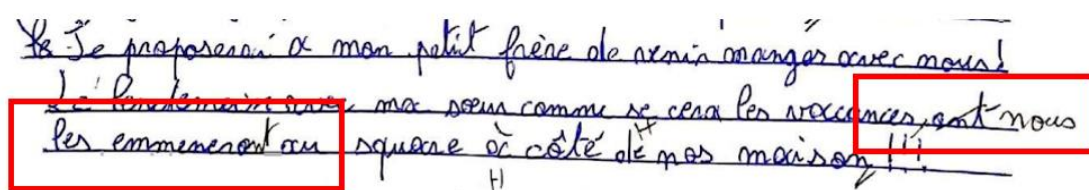 Je proposerai a mon petit frère de venir manger avec nous!
Le lendemain avec ma sœur comme se cera les vacances, ont nous
les emmeneront au square à côté de nos maison !!!